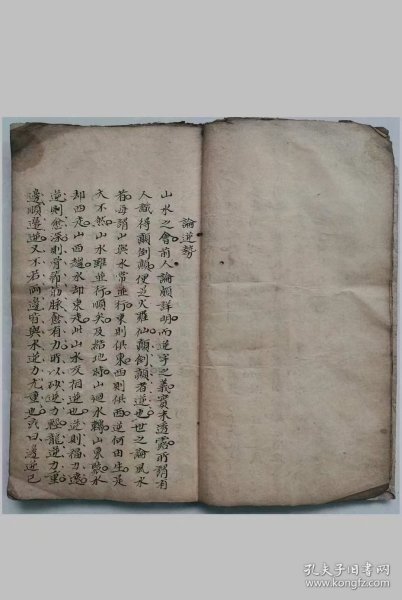 論逆勢
山水之會前人論頗詳明而逆字之義實未透露所謂有
人識得顛倒顛便是大羅仙顛倒顛者逆也世之論風水
者每謂山與水常並行東則俱東西則俱西逆何由生是
大不然山水雖並行順矣及結地時山迴水轉山東水
却西走山西水却東走此山水反相逆也逆則福力
逆則愈深則骨節筋脉愈有力所以砂逆力輕龍逆力重
邊順邊逆又不若兩邊皆與水逆力尤重也
孔夫子旧书网
www.kongfz.com